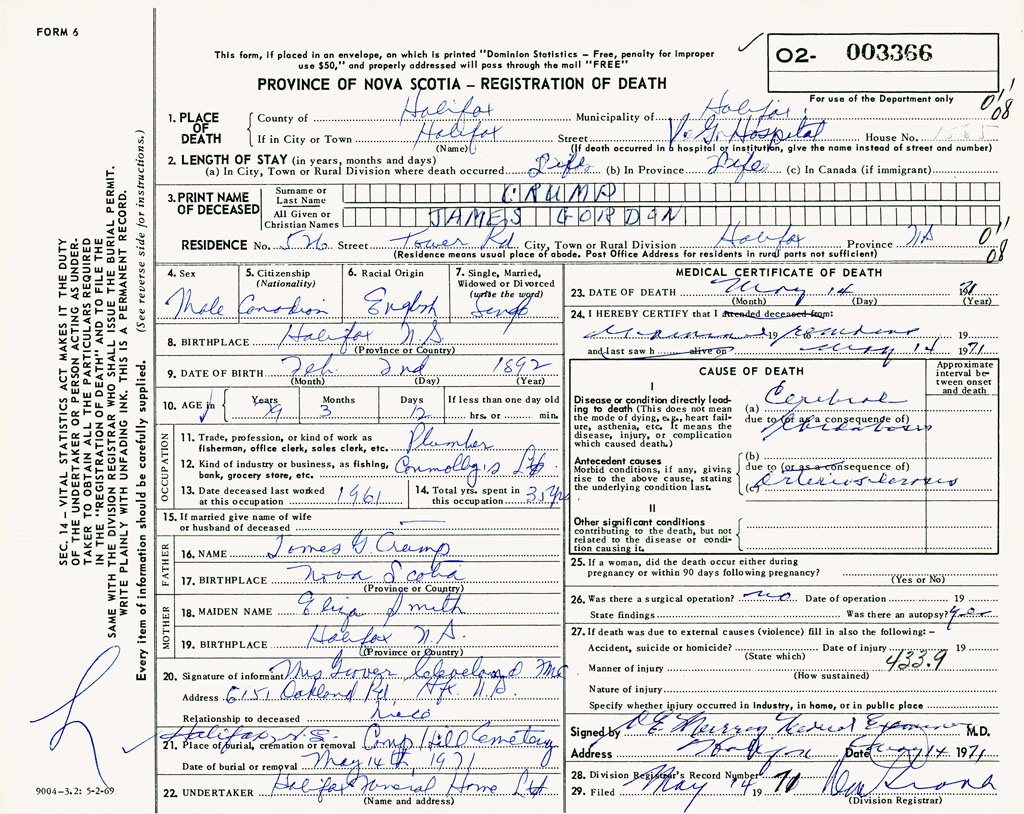 FORM 6
This form, if placed in an envelope, on which is printed "Dominion Statistics – Free, penalty for improper
use $50," and properly addressed will pass through the mail "FREE"
O2- 003366
PROVINCE OF NOVA SCOTIA – REGISTRATION OF DEATH
For use of the Department only
1. PLACE OF DEATH
County of Halifax Municipality of Halifax
If in City or Town Halifax Street V. G. Hospital House No.
(Name) (If death occurred in a hospital or institution, give the name instead of street and number)
2. LENGTH OF STAY (in years, months and days)
(a) In City, Town or Rural Division where death occurred Life (b) In Province Life (c) In Canada (if immigrant)
3. PRINT NAME OF DECEASED
Surname or Last Name CRUMP
All Given or Christian Names JAMES GORDON
RESIDENCE No. 526 Street Tower Rd City, Town or Rural Division Halifax Province N.S
(Residence means usual place of abode. Post Office Address for residents in rural parts not sufficient)
011
08
011
08
4. Sex
Male
5. Citizenship
(Nationality)
Canadian
6. Racial Origin
English
7. Single, Married,
Widowed or Divorced
(write the word)
Single
8. BIRTHPLACE Halifax N.S.
(Province or Country)
9. DATE OF BIRTH Feb 2nd 1892
(Month) (Day) (Year)
10. AGE Years 79 Months 3 Days 12 If less than one day old
hrs. or min.
OCCUPATION
11. Trade, profession, or kind of work as
fisherman, office clerk, sales clerk, etc. Plumber
12. Kind of industry or business, as fishing,
bank, grocery store, etc. Connolly's Ltd.
13. Date deceased last worked
at this occupation 1961
14. Total yrs. spent in
this occupation 35 yrs
15. If married give name of wife
or husband of deceased —
FATHER
16. NAME James G Crump
17. BIRTHPLACE Nova Scotia
(Province or Country)
MOTHER
18. MAIDEN NAME Eliza Smith
19. BIRTHPLACE Halifax N.S.
(Province or Country)
20. Signature of informant Mrs Grover Cleveland
Address 6151 Oakland Rd. Hfx N.S
Relationship to deceased Niece
Halifax N.S.
21. Place of burial, cremation or removal Camp Hill Cemetery
Date of burial or removal May 14th, 1971
22. UNDERTAKER Halifax Funeral Home Ltd
(Name and address)
MEDICAL CERTIFICATE OF DEATH
23. DATE OF DEATH May 14 1971
(Month) (Day) (Year)
24. I HEREBY CERTIFY that I attended deceased from:
examined 19 remains 19
and last saw h alive on May 14 1971
CAUSE OF DEATH
Approximate interval between onset and death
I
Disease or condition directly leading to death (This does not mean
the mode of dying, e.g., heart failure, asthenia, etc. It means the
disease, injury, or complication
which caused death.)
(a) Cerebral
due to (or as a consequence of)
Thrombosis
Antecedent causes
Morbid conditions, if any, giving
rise to the above cause, stating
the underlying condition last.
(b)
due to (or as a consequence of)
(c) Arteriosclerosis
II
Other significant conditions
contributing to the death, but not
related to the disease or condition causing it.
25. If a woman, did the death occur either during
pregnancy or within 90 days following pregnancy?
(Yes or No)
26. Was there a surgical operation? no Date of operation 19
State findings Was there an autopsy? yes
27. If death was due to external causes (violence) fill in also the following: –
Accident, suicide or homicide? Date of injury 19
(State which) 433.9
Manner of injury
(How sustained)
Nature of injury
Specify whether injury occurred in industry, in home, or in public place
Signed by R E Murray Medical Examiner M.D.
Address Halifax Date May 14 1971
28. Division Registrar's Record Number
29. Filed May 14 19 71
(Division Registrar)
SEC. 14 – VITAL STATISTICS ACT MAKES IT THE DUTY
OF THE UNDERTAKER OR PERSON ACTING AS UNDER-
TAKER TO OBTAIN ALL THE PARTICULARS REQUIRED
IN THE "REGISTRATION OF DEATH" AND TO FILE THE
SAME WITH THE DIVISION REGISTRAR WHO SHALL ISSUE THE BURIAL PERMIT.
WRITE PLAINLY WITH UNFADING INK. THIS IS A PERMANENT RECORD.
Every item of information should be carefully supplied. (See reverse side for instructions.)
9004-3.2: 5-2-69